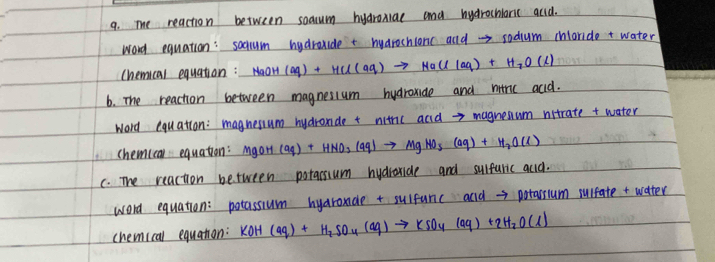 a. The reaction between sodium hydroxide and hydrochloric acid.
Word equation: sodium hydroxide + hydrochloric acid → sodium chloride + water
Chemical equation: NaOH (aq) + HCl (aq) → NaCl (aq) + H₂O (l)
b. The reaction between magnesium hydroxide and nitric acid.
Word equation: magnesium hydroxide + nitric acid → magnesium nitrate + water
Chemical equation: MgOH (aq) + HNO₃ (aq) → MgNO₃ (aq) + H₂O (l)
c. The reaction between potassium hydroxide and sulfuric acid.
word equation: potassium hydroxide + sulfuric acid → potassium sulfate + water
chemical equation: KOH (aq) + H₂SO₄ (aq) → KSO₄ (aq) + 2H₂O (l)